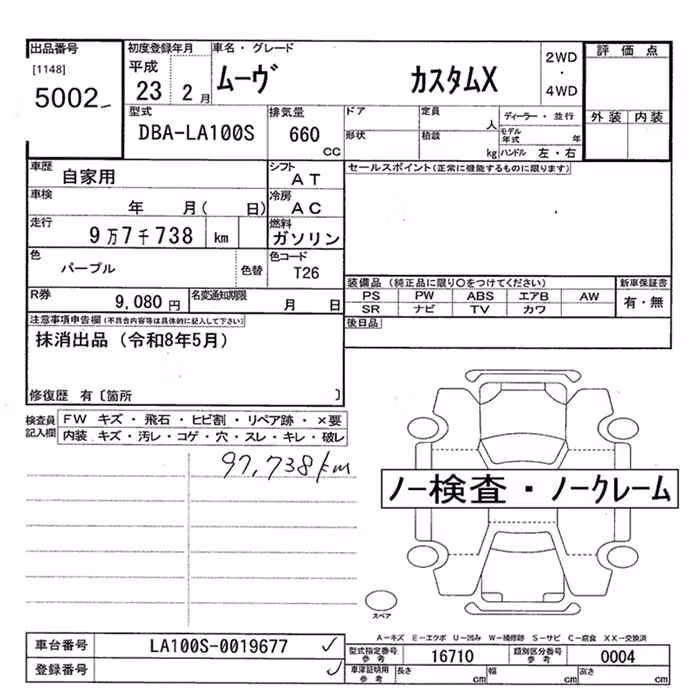 出品番号
[1148]
5002
初度登録年月
平成
23 2 月
車名・グレード
ムーヴ カスタムX
2WD
・
4WD
評価点
外装 内装
型式
DBA-LA100S
排気量
660
CC
ドア
定員
人
ディーラー・並行
形状
積載
kg
モデル年式
年
ハンドル 左・右
車歴
自家用
シフト
AT
セールスポイント(正常に機能するものに限ります)
車検
年 月( 日)
冷房
AC
走行
9万7千738 km
燃料
ガソリン
色
パープル
色替
色コード
T26
装備品(純正品に限り○をつけてください)
新車保証書
PS PW ABS エアB AW
SR ナビ TV カワ
有・無
R券
9,080 円
名変通知期限
月 日
後日品
注意事項申告欄(不具合内容等は具体的に記入して下さい)
抹消出品(令和8年5月)
修復歴 有〔箇所 〕
検査員記入欄
FW キズ・飛石・ヒビ割・リペア跡・×要
内装 キズ・汚レ・コゲ・穴・スレ・キレ・破レ
97,738km
ノー検査・ノークレーム
スペア
A-キズ E-エクボ U-凹み W-補修跡 S-サビ C-腐食 XX-交換済
車台番号
LA100S-0019677
登録番号
型式指定番号
参考
16710
類別区分番号
参考
0004
車庫証明用
参考
長さ cm
幅 cm
高さ cm